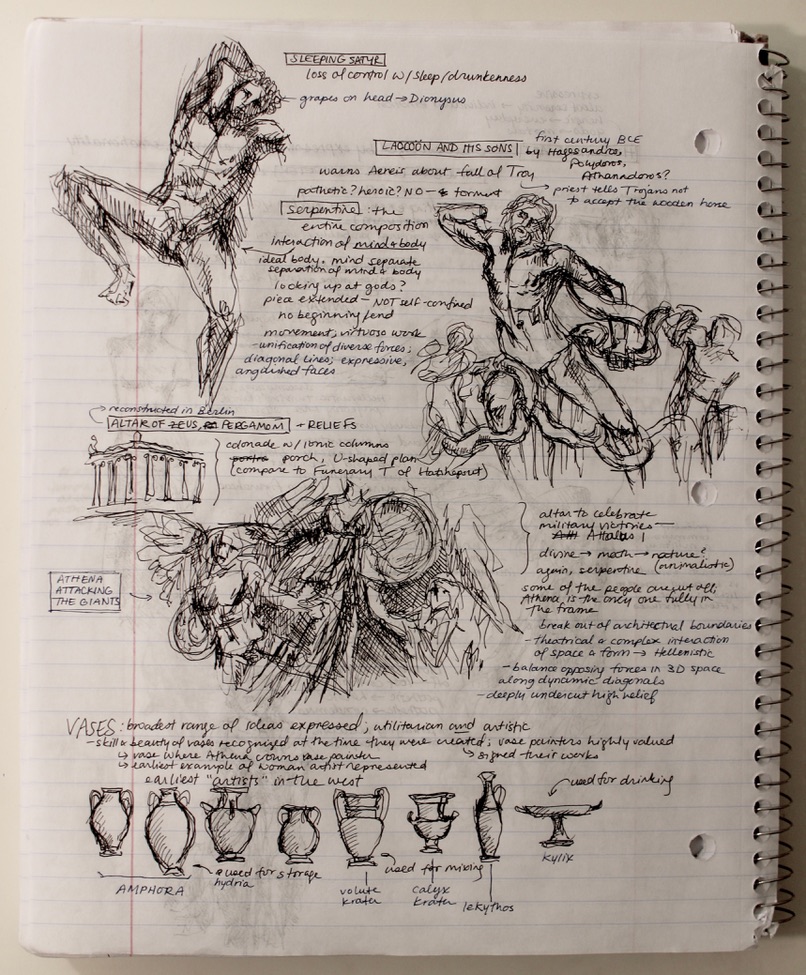 SLEEPING SATYR
loss of control w/sleep/drunkenness
grapes on head → Dionysus
LAOCOÖN AND HIS SONS
first century BCE
by Hagesandros,
Polydoros,
Athanadoros?
warns Aeneis about fall of Troy
pathetic? heroic? NO - & torment
→ priest tells Trojans not
to accept the wooden horse
serpentine: the
entire composition
interaction of mind & body
ideal body. mind separate
separation of mind & body
looking up at gods?
piece extended - NOT self-confined
no beginning/end
movement, virtuoso work
- unification of diverse forces;
diagonal lines; expressive,
anguished faces
reconstructed in Berlin
ALTAR OF ZEUS, PERGAMOM + RELIEFS
colonade w/ionic columns
porch, U-shaped plan
(compare to Funerary T of Hatshepsut)
altar to celebrate
military victories —
Attalus I
divine → math → nature?
again, serpentine (animalistic)
ATHENA
ATTACKING
THE GIANTS
some of the people are cut off;
Athena is the only one fully in
the frame
break out of architectual boundaries
- theatrical & complex interaction
of space & form → Hellenistic
- balance opposing forces in 3D space
along dynamic diagonals
- deeply undercut high relief
VASES: broadest range of ideas expressed; utilitarian and artistic
- skill & beauty of vases recognized at the time they were created; vase painters highly valued
↳ vase where Athena crowns vase painter
↳ signed their works
↳ earliest example of woman artist represented
earliest "artists" in the west
used for drinking
kylix
AMPHORA
used for storage
hydria
used for mixing
volute
krater
calyx
krater
lekythos